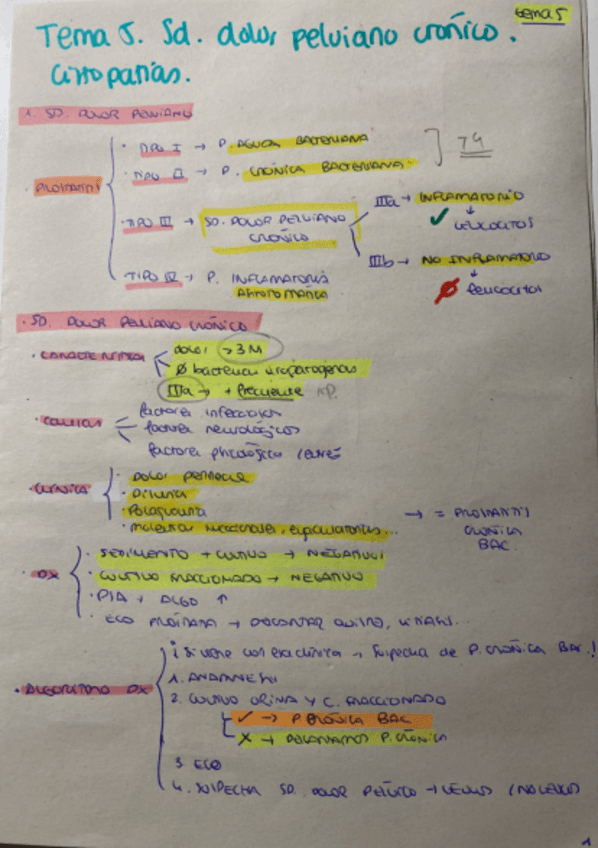 tema 5
Tema 5. Sd. dolor pelviano crónico.
Cistopatías.
1. SD. DOLOR PELVIANO
PROSTATITIS
· TIPO I → P. AGUDA BACTERIANA
· TIPO II → P. CRÓNICA BACTERIANA
T4
· TIPO III → SD. DOLOR PELVIANO CRÓNICO
IIIa → INFLAMATORIO
✓ LEUCOCITOS
IIIb → NO INFLAMATORIO
Ø leucocitos
TIPO IV → P. INFLAMATORIA
ASINTOMÁTICA
· SD. DOLOR PELVIANO CRÓNICO
· CARACTERÍSTICA
dolor >3M
Ø bacterias uropatógenas
IIIa → + frecuente
· CAUSAS
factores infecciosos
factores neurológicos
factores psicológico (estrés
· CLÍNICA
· DOLOR PERINEAL
· DISURIA
· POLAQUIURIA
· molestias miccionales, eyaculatorias...
→ = PROSTATITIS
CRÓNICA
BAC.
· DX
· SEDIMENTO + CULTIVO → NEGATIVOS
· CULTIVO FRACCIONADO → NEGATIVO
· PSA + ALGO ↑
· ECO PRÓSTATA → DESCARTAR QUISTES, LITIASIS...
· ALGORITMO DX
¡ si viene con esa clínica → sospecha de P. CRÓNICA BAC.!
1. ANAMNESIS
2. CULTIVO ORINA Y C. FRACCIONADO
✓ → P. CRÓNICA BAC
X → DESCARTAMOS P. CRÓNICA
3. ECO
4. SOSPECHA SD. DOLOR PÉLVICO →
1